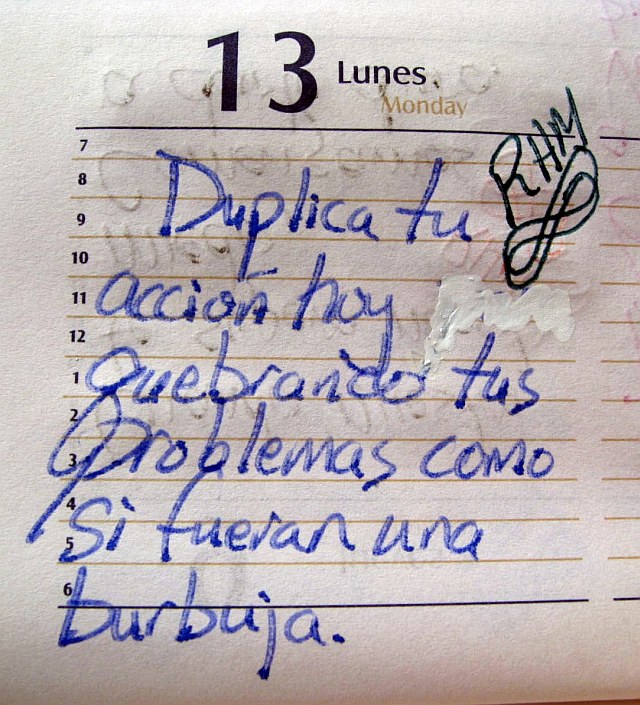 13 Lunes
Monday
RHM
7
8
Duplica tu
9
10
11
acción hoy
12
1
quebrando tus
2
3
problemas como
4
5
si fueran una
6
burbuja.